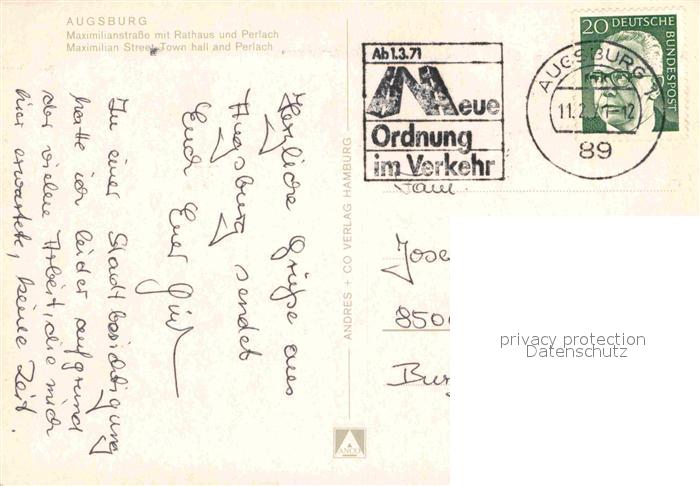 AUGSBURG
Maximilianstraße mit Rathaus und Perlach
Maximilian Street Town hall and Perlach
Herzliche Grüße aus
Augsburg sendet
Euch Euer
Zu einer Stadtbesichtigung
hatte ich leider aufgrund
der vielen Arbeit, die mich
hier erwartete, keine Zeit.
ANDRES + CO VERLAG HAMBURG
ANCO
Ab 1.3.71
Neue
Ordnung
im Verkehr
AUGSBURG
89
20 DEUTSCHE
BUNDESPOST
Fam.
Jose
850
Bur
privacy protection
Datenschutz